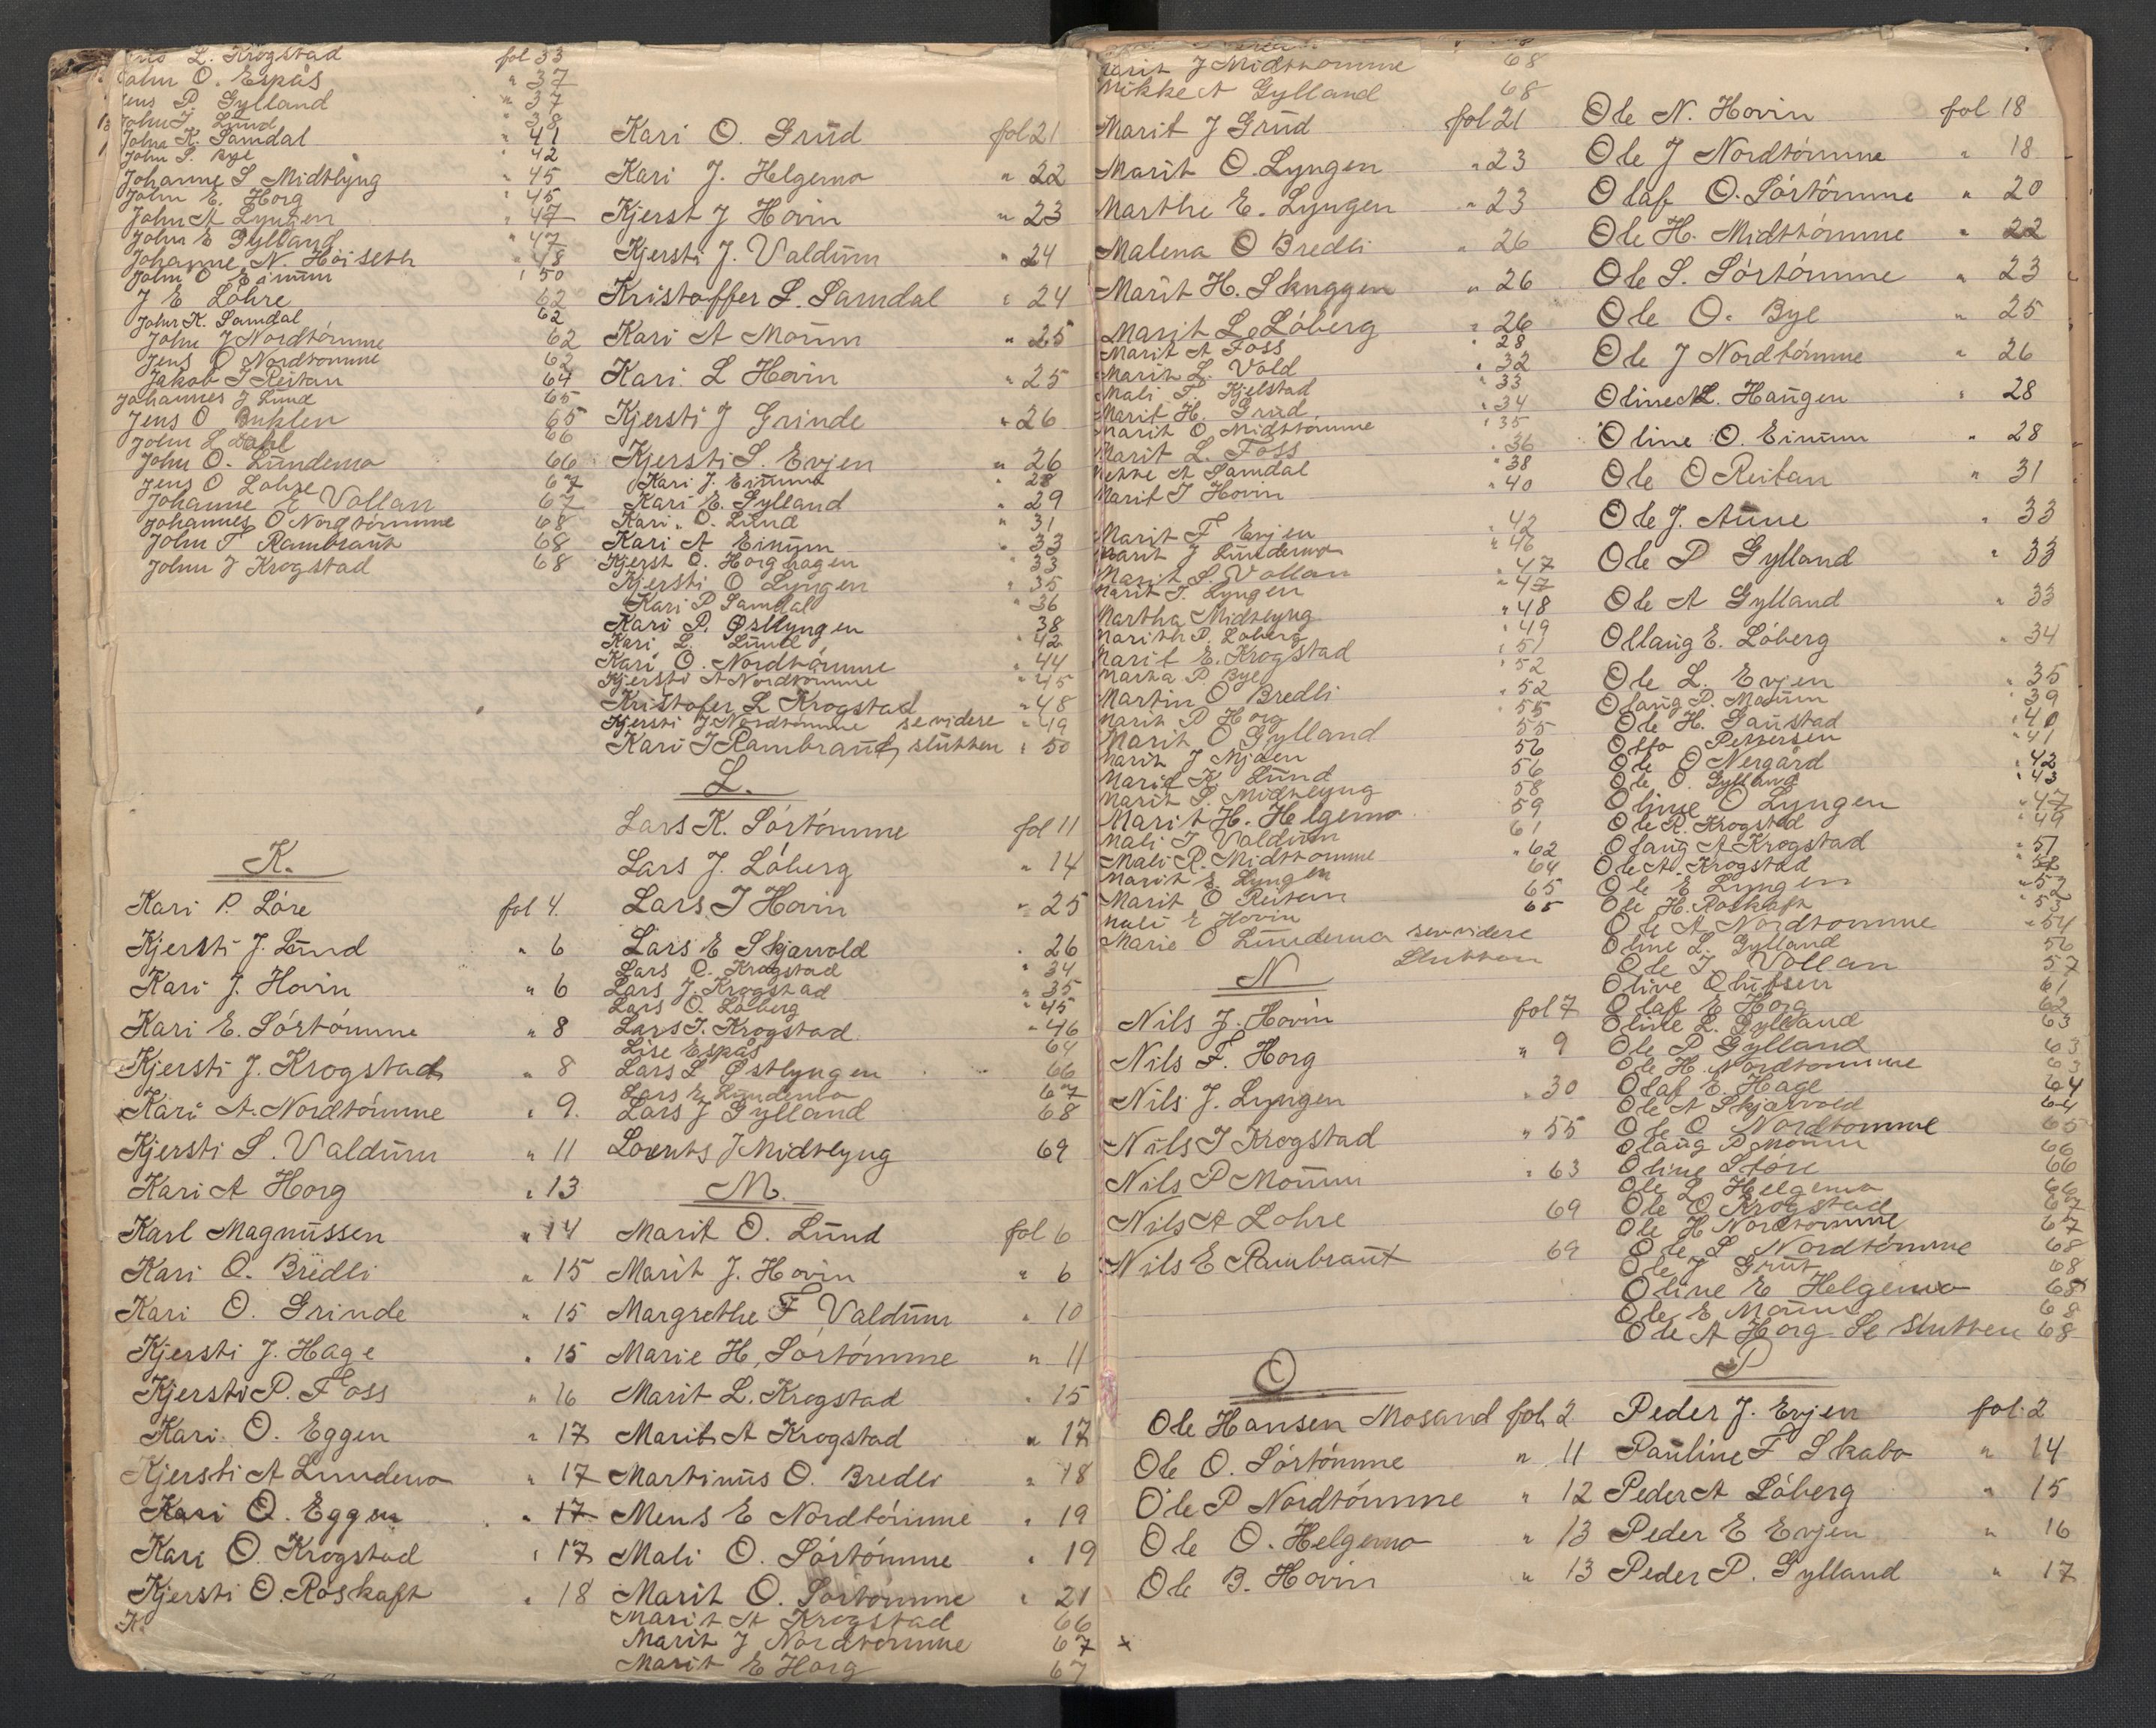 L. Krogstad fol 33
John O. Espås " 37
Jens P. Gylland " 37
John J. Lund " 38
John K. Samdal " 41
John S. Bye " 42
Johanne S Midtlyng " 45
John E. Horg " 45
John A Lyngen " 47
John E Gylland " 47
Johanne N. Höiseth " 48
John O Einum " 50
J E Löhre 62
John K. Samdal 62
John J Nordtömme 62
Jens O Nordtömme 62
Jakob J Reitan 64
Johannes J Lund 65
Jens O Buklen 65
John L Dahl 66
John O. Lundemo 66
Jens O Löhre 67
Johanne E Vollan 67
Johannes O Nordtömme 68
John T Rambraut 68
John J Krogstad 68
K.
Kari P. Löre fol 4.
Kjersti J. Lund " 6
Kari J. Hovin " 6
Kari E. Sörtömme " 8
Kjersti J. Krogstad " 8
Kari A. Nordtömme " 9.
Kjersti S. Valdum " 11
Kari A Horg " 13
Karl Magnussen " 14
Kari O. Bredli " 15
Kari O. Grinde " 15
Kjersti J. Hage " 15
Kjersti P. Foss " 16
Kari O. Eggen " 17
Kjersti A Lundemo " 17
Kari O. Eggen " 17
Kari O. Krogstad " 17
Kjersti O. Röskaft " 18
K.
Kari O. Grud fol 21
Kari J. Helgemo " 22
Kjerst J Hovin " 23
Kjersti J. Valdum " 24
Kristoffer S. Samdal " 24
Kari A Moum " 25
Kari L Hovin " 25
Kjersti J Grinde " 26
Kjersti S. Evjen " 26
Kari J. Einum " 28
Kari E. Gylland " 29
Kari O. Lund " 31
Kari A Einum " 33
Kjerst O. Horghagen " 33
Kjersti O Lyngen " 35
Kari P Samdal " 36
Kari P. Østlyngen 38
Kari L. Lund " 42
Kari O. Nordtömme " 44
Kjersti A Nordtömme " 45
Kristofer L Krogstad " 48
Kjersti J Nordtömme se videre " 49
Kari J Rambraut, slutten " 50
L.
Lars K. Sörtömme fol 11
Lars J. Löberg " 14
Lars J Hovin " 25
Lars E Skjærvold " 26
Lars O. Krogstad " 34
Lars J. Krogstad " 35
Lars O. Löberg " 45
Lars J. Krogstad " 46
Lise Espås 64
Lars L Østlyngen 66
Lars E. Lundemo 67
Lars J Gylland 68
Lorents J Midtlyng 69
M.
Marit O. Lund fol 6
Marit J. Hovin " 6
Margrethe F Valdum " 10
Marie H, Sörtömme " 11
Marit L. Krogstad " 15
Marit A Krogstad " 17
Martinus O. Bredli " 18
Mens E Nordtömme " 19
Mali O. Sörtömme " 19
Marit O. Sörtömme " 21
Marit A Krogstad 66
Marit J Nordtömme 67
Marit E Horg 67
Marit J Midttömme 68
Mikke A Gylland 68
Marit J Grud fol 21
Marit O. Lyngen " 23
Marthe E. Lyngen " 23
Malena O Bredli " 26
Marit H. Skuggen " 26
Marit L. Löberg " 26
Marit A Foss " 28
Marit L. Vold " 32
Mali T. Kjelstad " 33
Marit H. Grud " 34
Marit O Midttömme " 35
Marit L. Foss " 36
Mekke A Samdal " 38
Marit J Hovin " 40
Marit F Evjen " 42
Marit J Lundemo " 46
Marit S. Vollan " 47
Marit T. Lyngen " 47
Martha Midtlyng " 48
Marith P. Löberg " 49
Marit E. Krogstad " 51
Marta P Bye " 52
Martin O Bredli " 52
Marit P Horg " 55
Marit O Gylland 55
Marit J Mjøen 56
Marit K. Lund 56
Marit S. Midtlyng 58
Marit H. Helgemo 59
Mali J Valdum 61
Mali P. Midttömme " 62
Marit E. Lyngen 64
Marit O Reitan 65
Mali E Hovin 65
Marie O Lundemo se videre
Slutten
N
Nils J. Hovin fol 7
Nils F. Horg " 9
Nils J. Lyngen " 30
Nils J Krogstad " 55
Nils P Moum " 63
Nils A Lohre 69
Nils E Rambraut 69
O
Ole Hansen Mosand fol. 2
Ole O. Sörtömme " 11
Ole P Nordtömme " 12
Ole O. Helgemo " 13
Ole B. Hovin " 13
x
Ole N. Hovin fol 18
Ole J Nordtömme " 18
Olaf O. Sörtömme " 20
Ole H. Midttömme " 22
Ole S. Sörtömme " 23
Ole O. Bye " 25
Ole J Nordtömme " 26
Oline L. Haugen " 28
Oline O. Einum " 28
Ole O Reitan " 31
Ole J. Aune " 33
Ole P Gylland " 33
Ole A Gylland " 33
Ollaug E. Löberg " 34
Ole L. Evjen " 35
Olaug P. Moum " 39
Ole H. Gaustad " 40
Otto Pettersen " 41
Ole O Nergård " 42
Ole O. Gylland " 43
Oline O Lyngen " 47
Ole R. Krogstad " 49
Olaug A Krogstad " 51
Ole A. Krogstad " 52
Ole E Lyngen " 52
Ole H. Röskaft " 53
Ole A Nordtömme " 54
Oline L. Gylland 56
Ole J Vollan 57
Olive Olufsen 61
Olaf E Horg 62
Oline L. Gylland 63
Ole P Gylland 63
Ole H. Nordtömme 63
Olaf E. Hage 64
Ole A Skjærvold 64
Ole O Nordtömme 65
Olaug P Moum 66
Oline Störe 66
Ole L Helgemo 66
Ole O Krogstad 67
Ole H Nordtömme 67
Ole S Nordtömme 68
Ole J Grut 68
Oline E Helgemo 68
Ole E Moum 68
Ole A Horg Se Slutten 68
P
Peder J. Evjen fol. 2
Pauline F Skabo " 14
Peder A Löberg " 15
Peder E Evjen " 16
Peder P. Gylland " 17